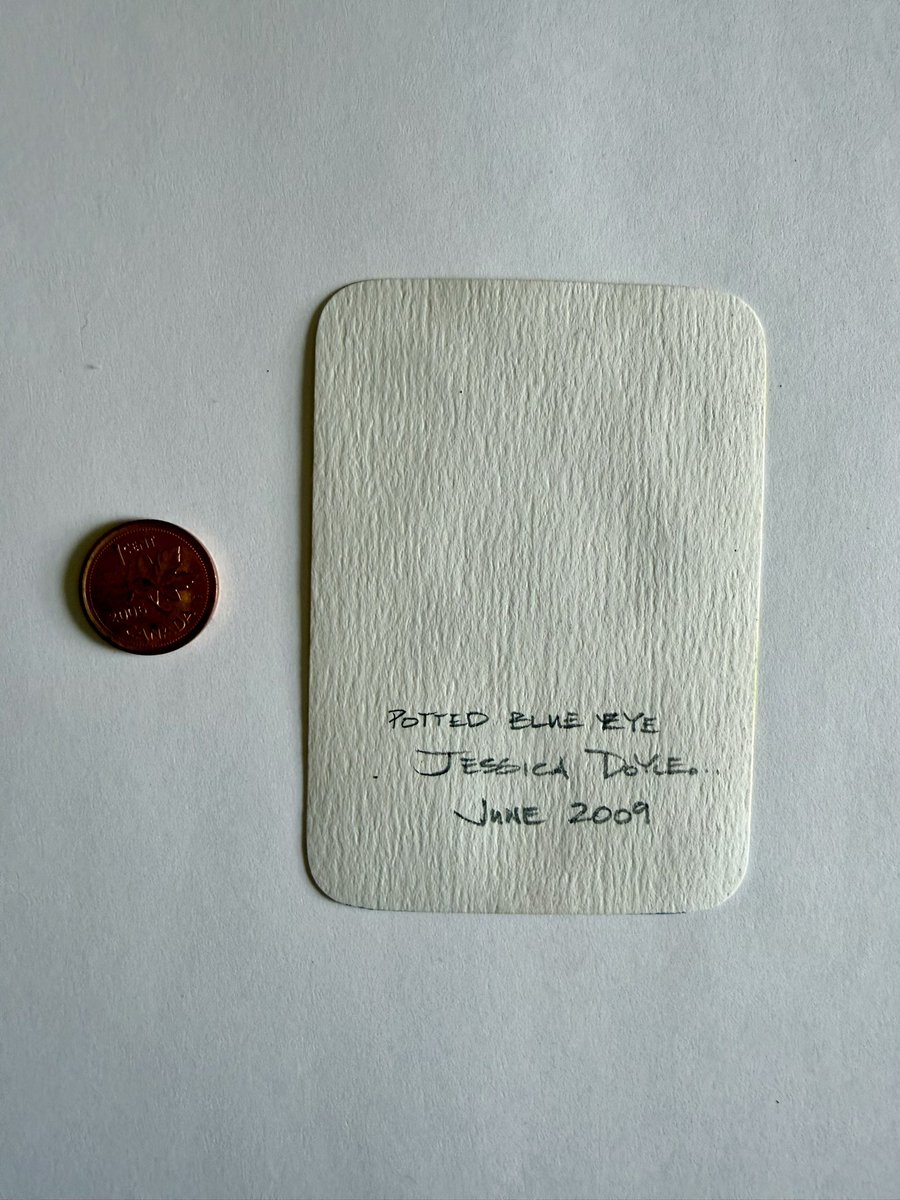 1 CENT
CANADA
POTTED BLUE EYE
JESSICA DOYLE...
JUNE 2009